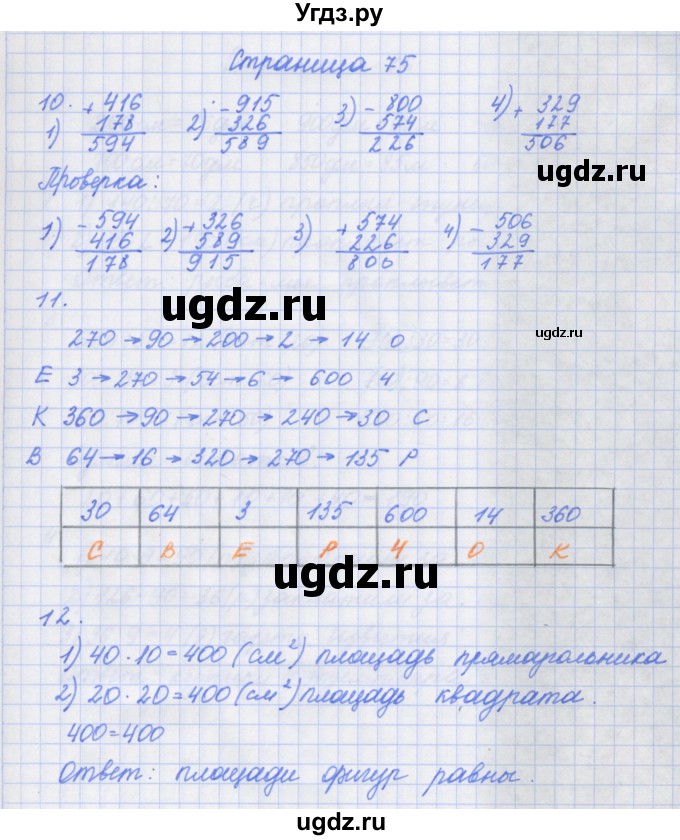 Угдз.ру
Страница 75
10.
1) + 416 178 594
2) - 915 326 589
3) - 800 574 226
4) + 329 177 506
ugdz.ru
Проверка:
1) - 594 416 178
2) + 326 589 915
3) + 574 226 800
4) - 506 329 177
11.
ugdz.ru
ugdz.ru
270 → 90 → 200 → 2 → 14 О
Е 3 → 270 → 54 → 6 → 600 Ч
К 360 → 90 → 270 → 240 → 30 С
В 64 → 16 → 320 → 270 → 135 Р
30 64 3 135 600 14 360
С В Е Р Ч О К
ugdz.ru
12.
1) 40 · 10 = 400 (см²) площадь прямагольника
2) 20 · 20 = 400 (см²) площадь квадрата.
400 = 400
ugdz.ru
Ответ: площади фигур равны.
ugdz.ru
ugdz.ru